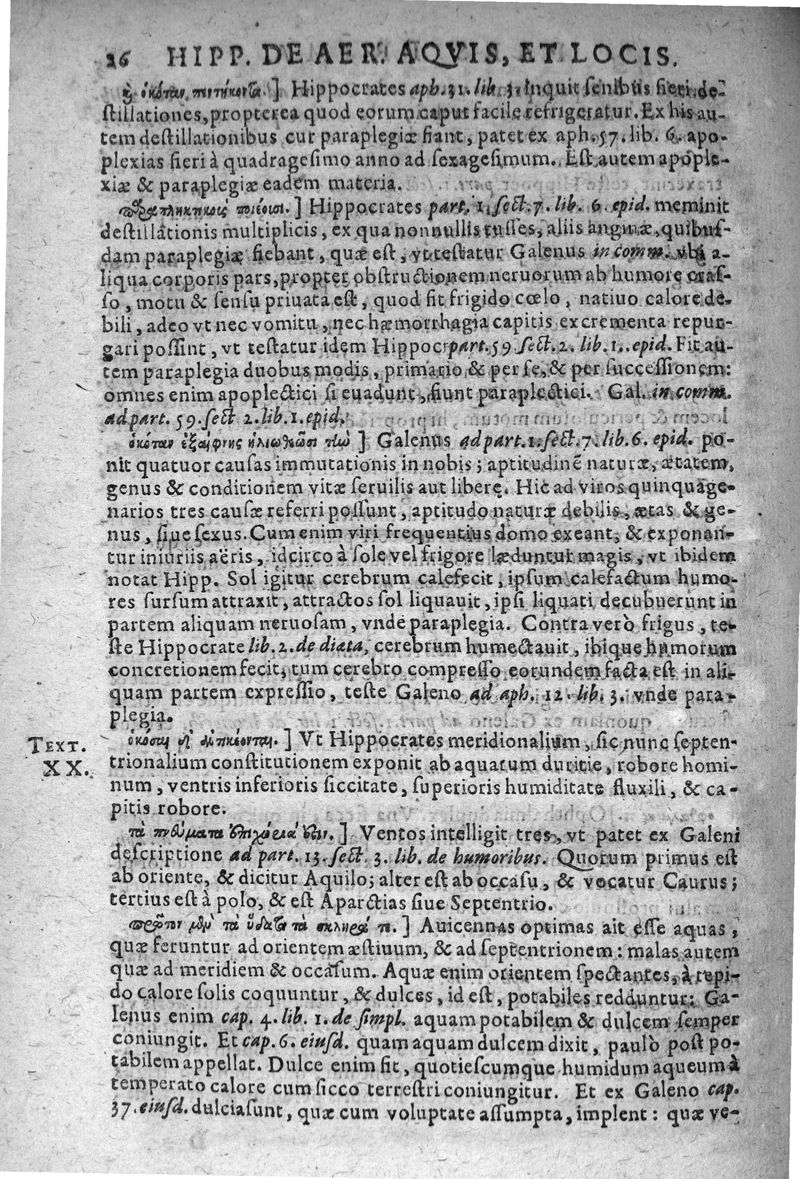 26 HIPP. DE AER. AQVIS, ET LOCIS.
ἢ ὁκόταν πεντήκοντα.] Hippocrates aph. 31. lib. 3. inquit senibus fieri de-
stillationes, propterea quod eorum caput facile refrigeratur. Ex his au-
tem destillationibus cur paraplegiæ fiant, patet ex aph. 57. lib. 6. apo-
plexias fieri à quadragesimo anno ad sexagesimum. Est autem apople-
xiæ & paraplegiæ eadem materia.
ποιέουσι.] Hippocrates part. 1. sect. 7. lib. 6. epid. meminit
destillationis multiplicis, ex qua nonnullis tusses, aliis anginæ, quibus-
dam paraplegiæ fiebant, quæ est, vt testatur Galenus in comm. vbi a-
liqua corporis pars, propter obstructionem neruorum ab humore cras-
so, motu & sensu priuata est, quod fit frigido cœlo, natiuo calore de-
bili, adeo vt nec vomitu, nec hæmorrhagia capitis excrementa repur-
gari possint, vt testatur idem Hippoc. part. 59 sect. 2. lib. 1. epid. Fit au-
tem paraplegia duobus modis, primario & per se, & per successionem:
omnes enim apoplectici si euadunt, fiunt paraplectici. Gal. in comm.
ad part. 59. sect 2. lib. 1. epid.
ὁκόταν ἐξαίφνης ἡλιωθῶσι τὴν] Galenus ad part. 1. sect. 7. lib. 6. epid. po-
nit quatuor causas immutationis in nobis; aptitudinẽ naturæ, ætatem,
genus & conditionem vitæ seruilis aut liberę. Hic ad viros quinquage-
narios tres causæ referri possunt, aptitudo naturæ debilis, ætas & ge-
nus, siue sexus. Cum enim viri frequentius domo exeant, & exponan-
tur iniuriis aëris, idcirco à sole vel frigore læduntur magis, vt ibidem
notat Hipp. Sol igitur cerebrum calefecit, ipsum calefactum humo-
res sursum attraxit, attractos sol liquauit, ipsi liquati decubuerunt in
partem aliquam neruosam, vnde paraplegia. Contra verò frigus, te-
ste Hippocrate lib. 2. de diæta, cerebrum humectauit, ibique humorum
concretionem fecit, tum cerebro compresso eorundem facta est in ali-
quam partem expressio, teste Galeno ad aph. 12. lib. 3. vnde para-
plegia.
TEXT. XX. ὁκόσαι δ᾽ ἀντικέονται.] Vt Hippocrates meridionalium, sic nunc septen-
trionalium constitutionem exponit ab aquarum duritie, robore homi-
num, ventris inferioris siccitate, superioris humiditate fluxili, & ca-
pitis robore.
τὰ πνεύματα ἐπιχώρια ἐστιν.] Ventos intelligit tres, vt patet ex Galeni
descriptione ad part. 13. sect. 3. lib. de humoribus. Quorum primus est
ab oriente, & dicitur Aquilo; alter est ab occasu, & vocatur Caurus;
tertius est à polo, & est Aparctias siue Septentrio.
πρῶτον μὲν τὰ ὕδατα τὰ σκληρά τε.] Auicennas optimas ait esse aquas,
quæ feruntur ad orientem æstiuum, & ad septentrionem: malas autem
quæ ad meridiem & occasum. Aquæ enim orientem spectantes, à tepi-
do calore solis coquuntur, & dulces, id est, potabiles redduntur: Ga-
lenus enim cap. 4. lib. 1. de simpl. aquam potabilem & dulcem semper
coniungit. Et cap. 6. eiusd. quam aquam dulcem dixit, paulò post po-
tabilem appellat. Dulce enim fit, quotiescumque humidum aqueum à
temperato calore cum sicco terrestri coniungitur. Et ex Galeno cap.
37. eiusd. dulcia sunt, quæ cum voluptate assumpta, implent: quæ ve-